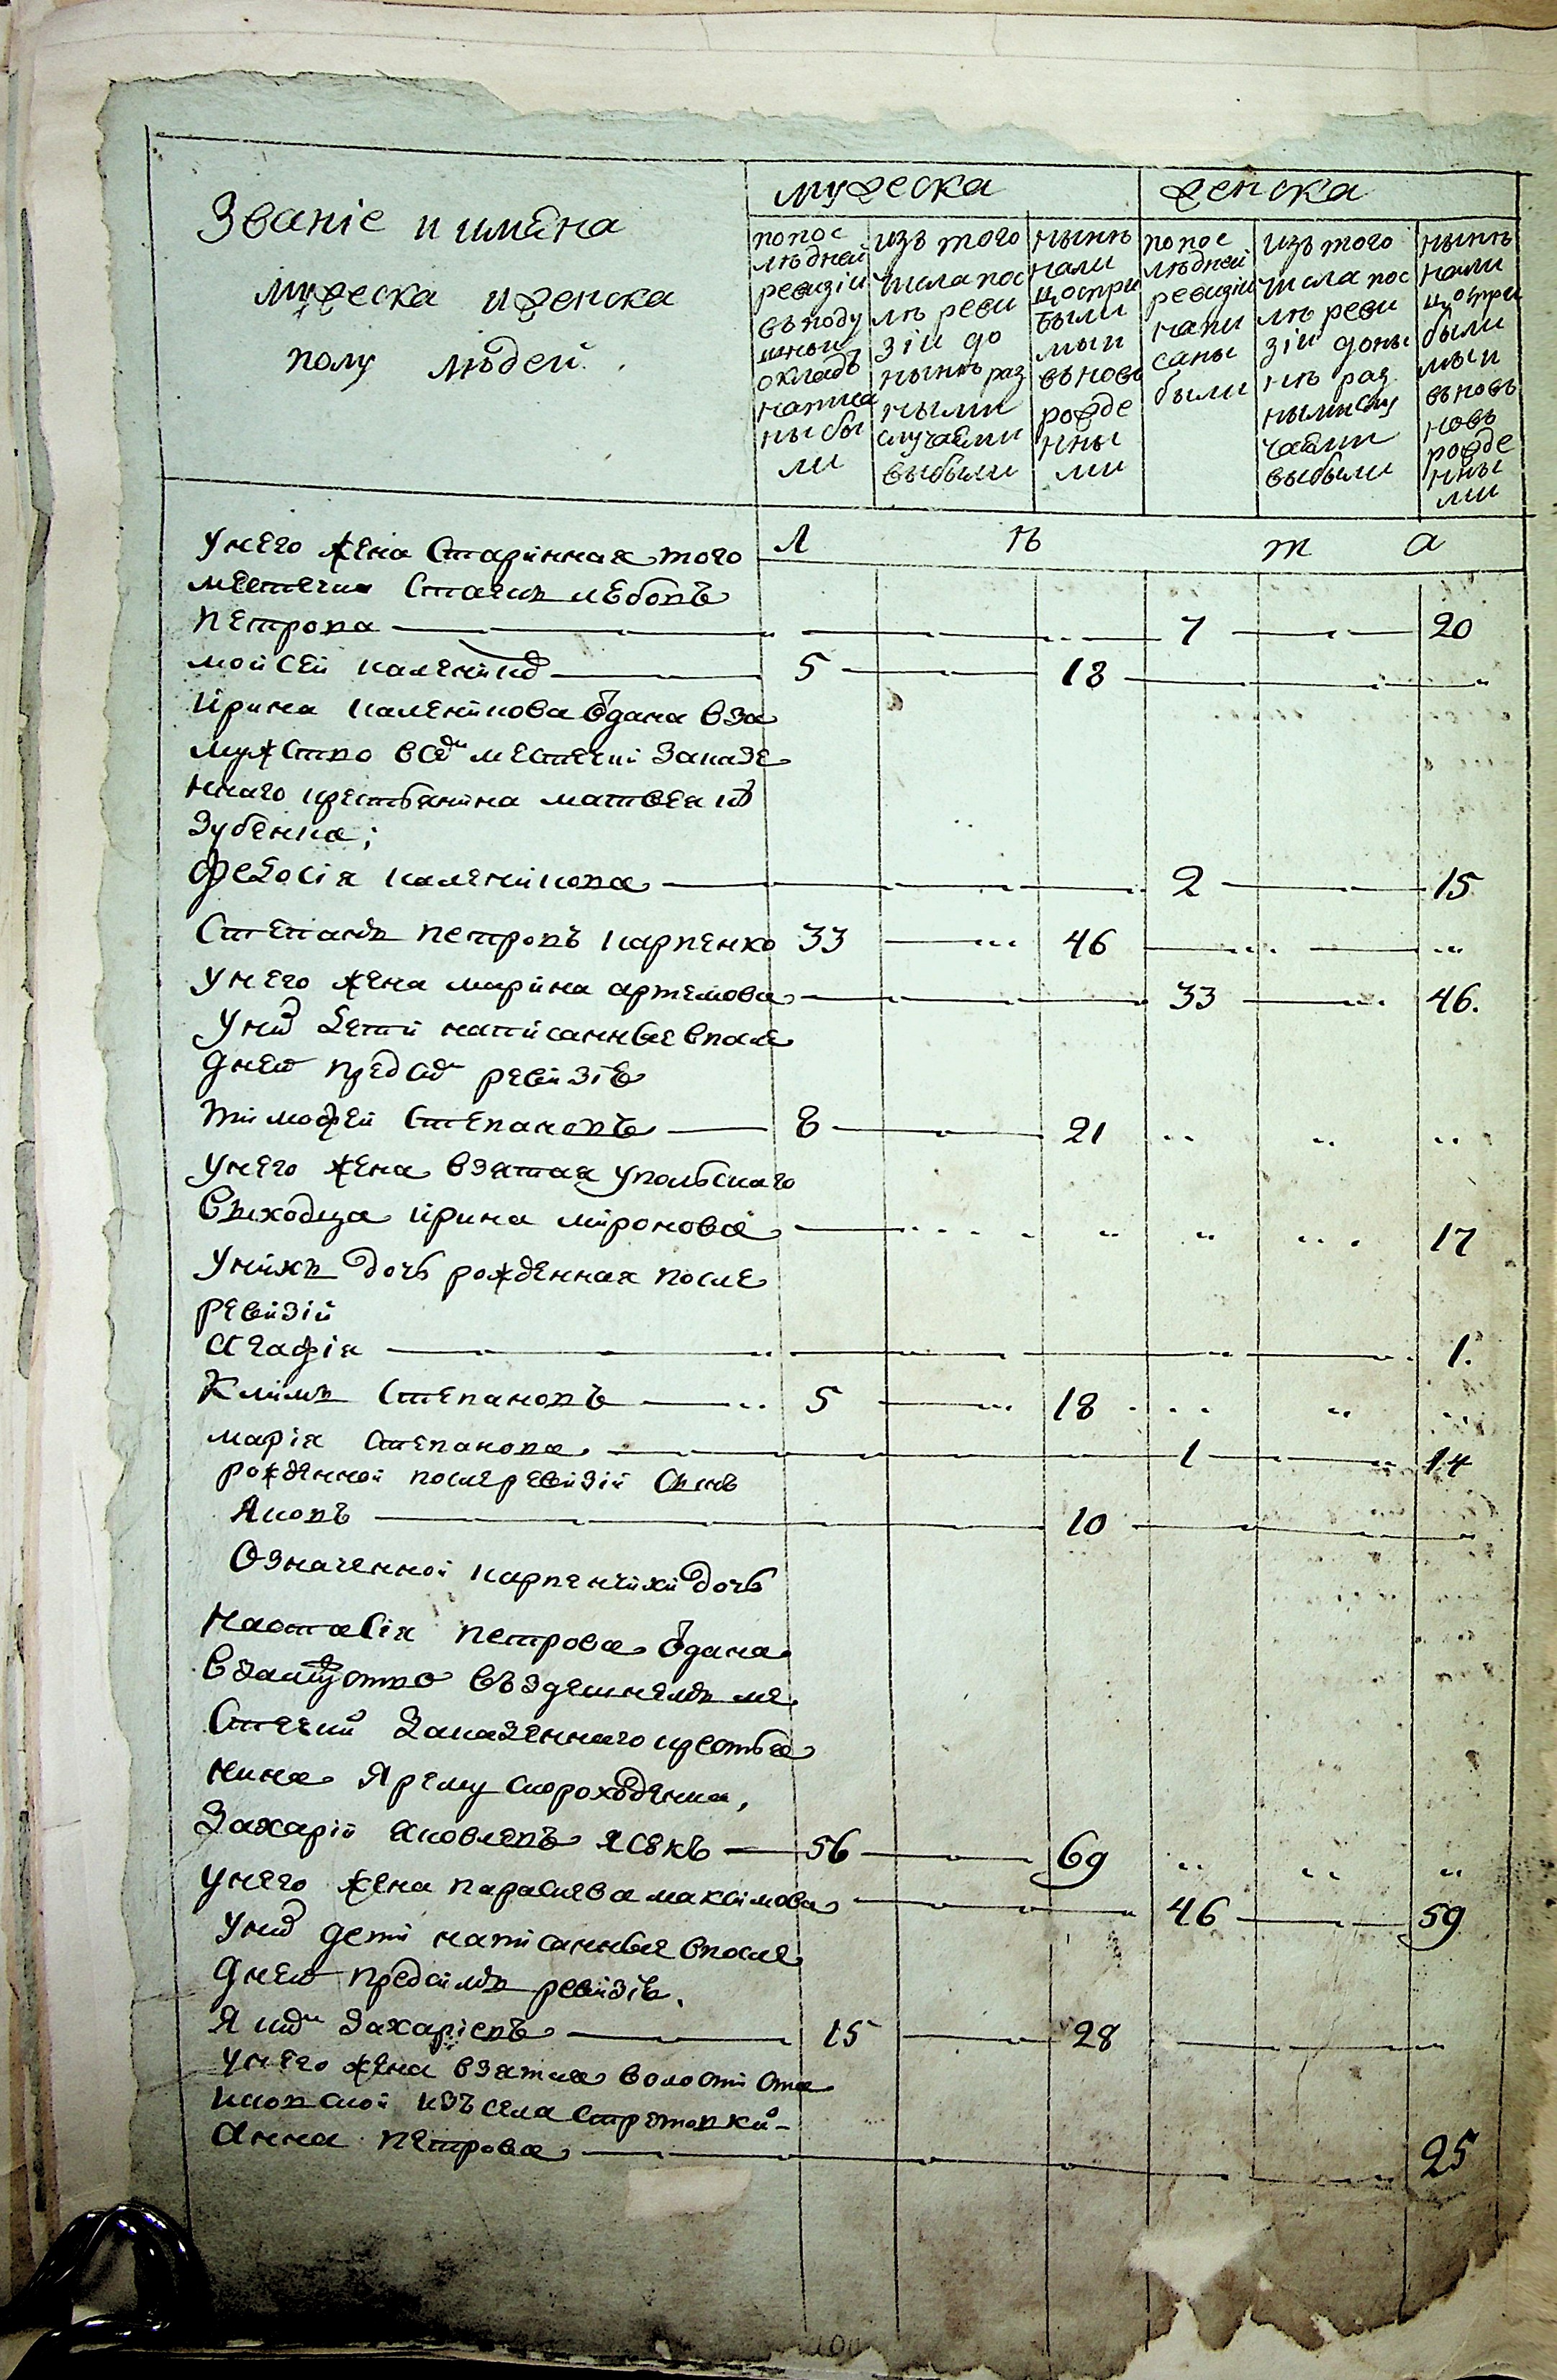 Званіе и имѣна
мужеска и женска
полу людей.
мужеска
женска
попос
лѣдней
ревизіи
въподу
шный
окладъ
написа
ны бы
ли
изъ того
числа пос
лѣ реви
зіи до
нынѣ раз
ными
случаями
выбыли
нынѣ
нали
цо спри
были
ми и
вновь
рожде
нны
ми
попос
лѣдней
ревизіи
напи
саны
были
изъ того
числа пос
лѣ реви
зіи доны
нѣ раз
нымислу
чаями
выбыли
нынѣ
нали
цо спри
были
ми и
вновь
новь
рожде
нны
ми
Л ѣ т а
Унего жена Старинная того
местечка
Петрова 7 20
мойсей каленикѡ 5 18
Ирина каленикова ѿдана вза
мужство всемъ местечки Заказе
ннаго крестьянина матвея
Зубенка;
Феѡосія каленикова 2 15
Степанъ петровъ карпенко 33 46
Унего жена марина артемова 33 46.
Унихъ дети написанные впосле
дней предъ симъ ревизіе
тимофей Степановъ 8 21
Унего жена взятая упольскаго
выходца ирина миронова 17
Унихъ дочь рожденная после
ревизіи
Агафія 1.
Климъ Степановъ 5 18
марія Степанова 1 14
рожденной послеревизіи Сынъ
Яковъ 10
Означенной карпенчихи дочь
Настасія петрова ѿдана
взамужство въздешнемъ ме
стечки Заказеннаго крестья
нина Ярему скороходенка,
Захарій яковлевъ ясекъ 56 69
Унего жена параскева максимова 46 59
Унихъ дети написанные впосле
дней предсимъ ревизіе.
Якимъ Захаріевъ 15 28
Унего жена взятая волости ста
нковской изъ села стретовки
Анна петрова 25